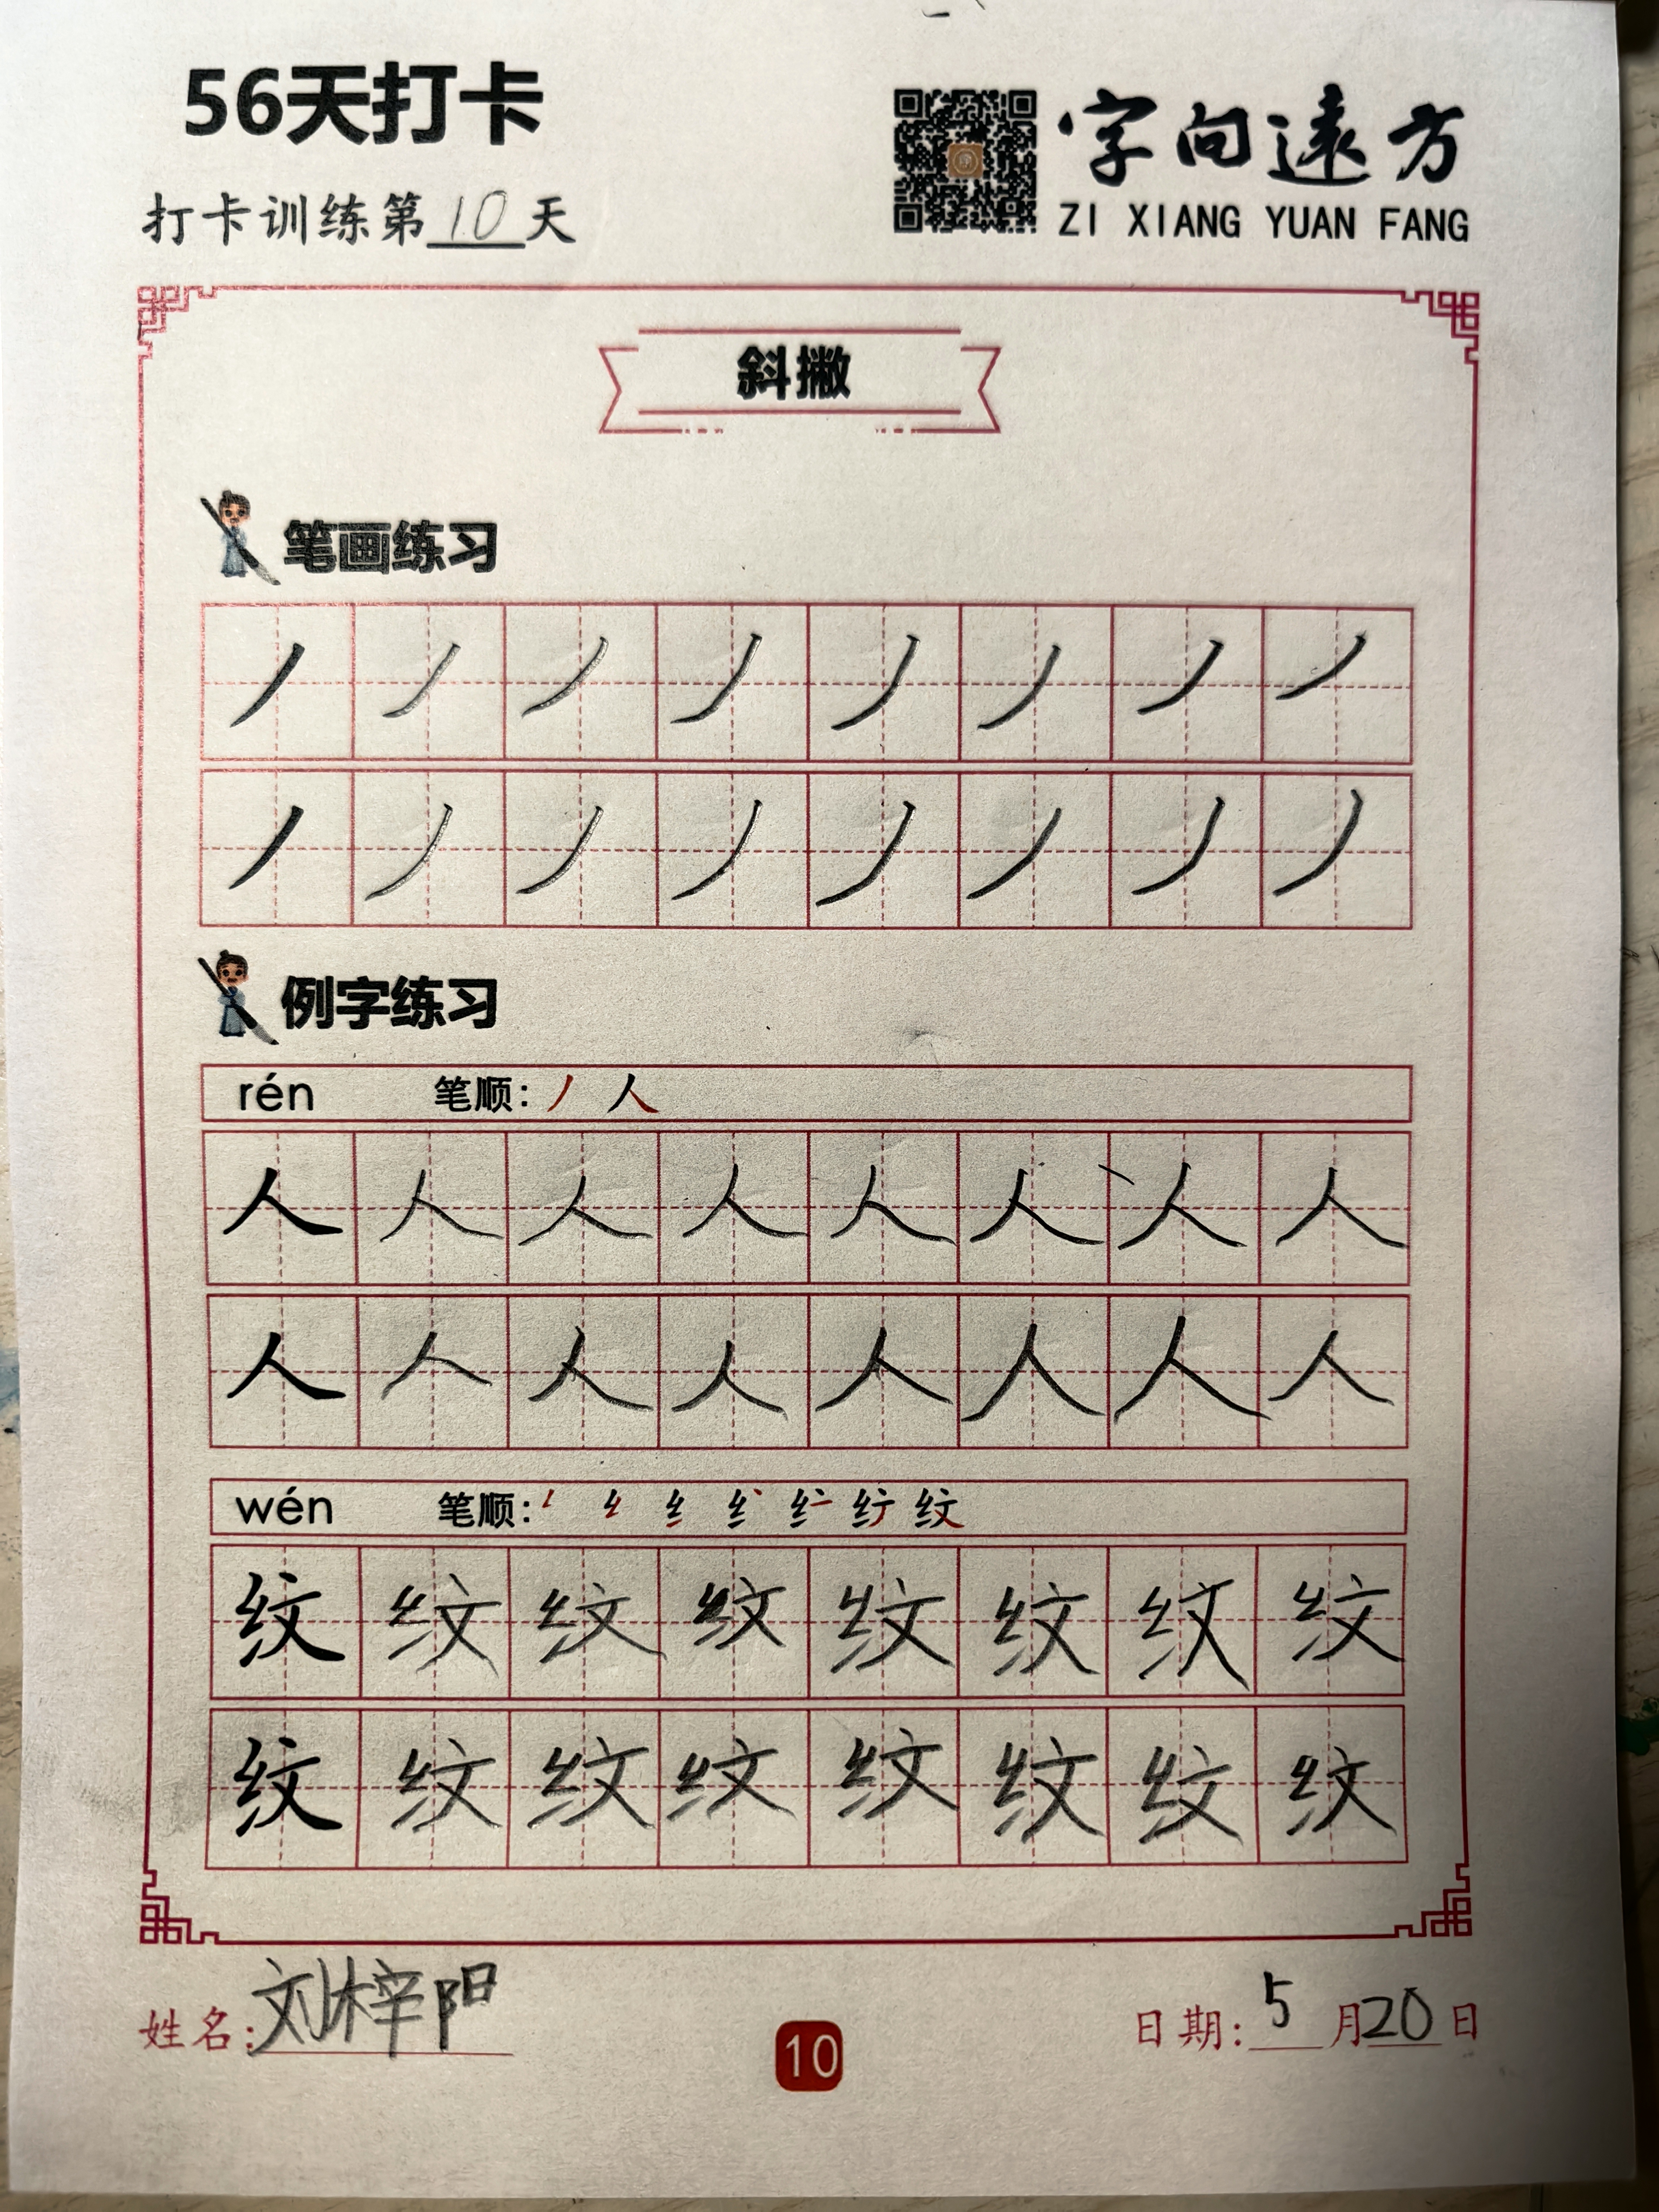 56天打卡
字向遠方
ZI XIANG YUAN FANG
打卡训练第10天
斜撇
笔画练习
丿丿丿丿丿丿丿丿
丿丿丿丿丿丿丿丿
例字练习
rén 笔顺：丿 人
人人人人人人人人
人人人人人人人人
wén 笔顺： 纹
纹纹纹纹纹纹纹纹
纹纹纹纹纹纹纹纹
姓名：刘梓阳
10
日期：5月20日